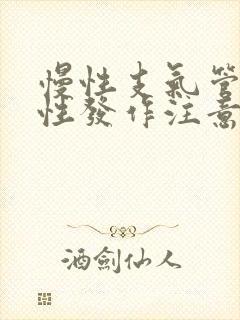 慢性支氣管
性發作注意
酒劍仙人